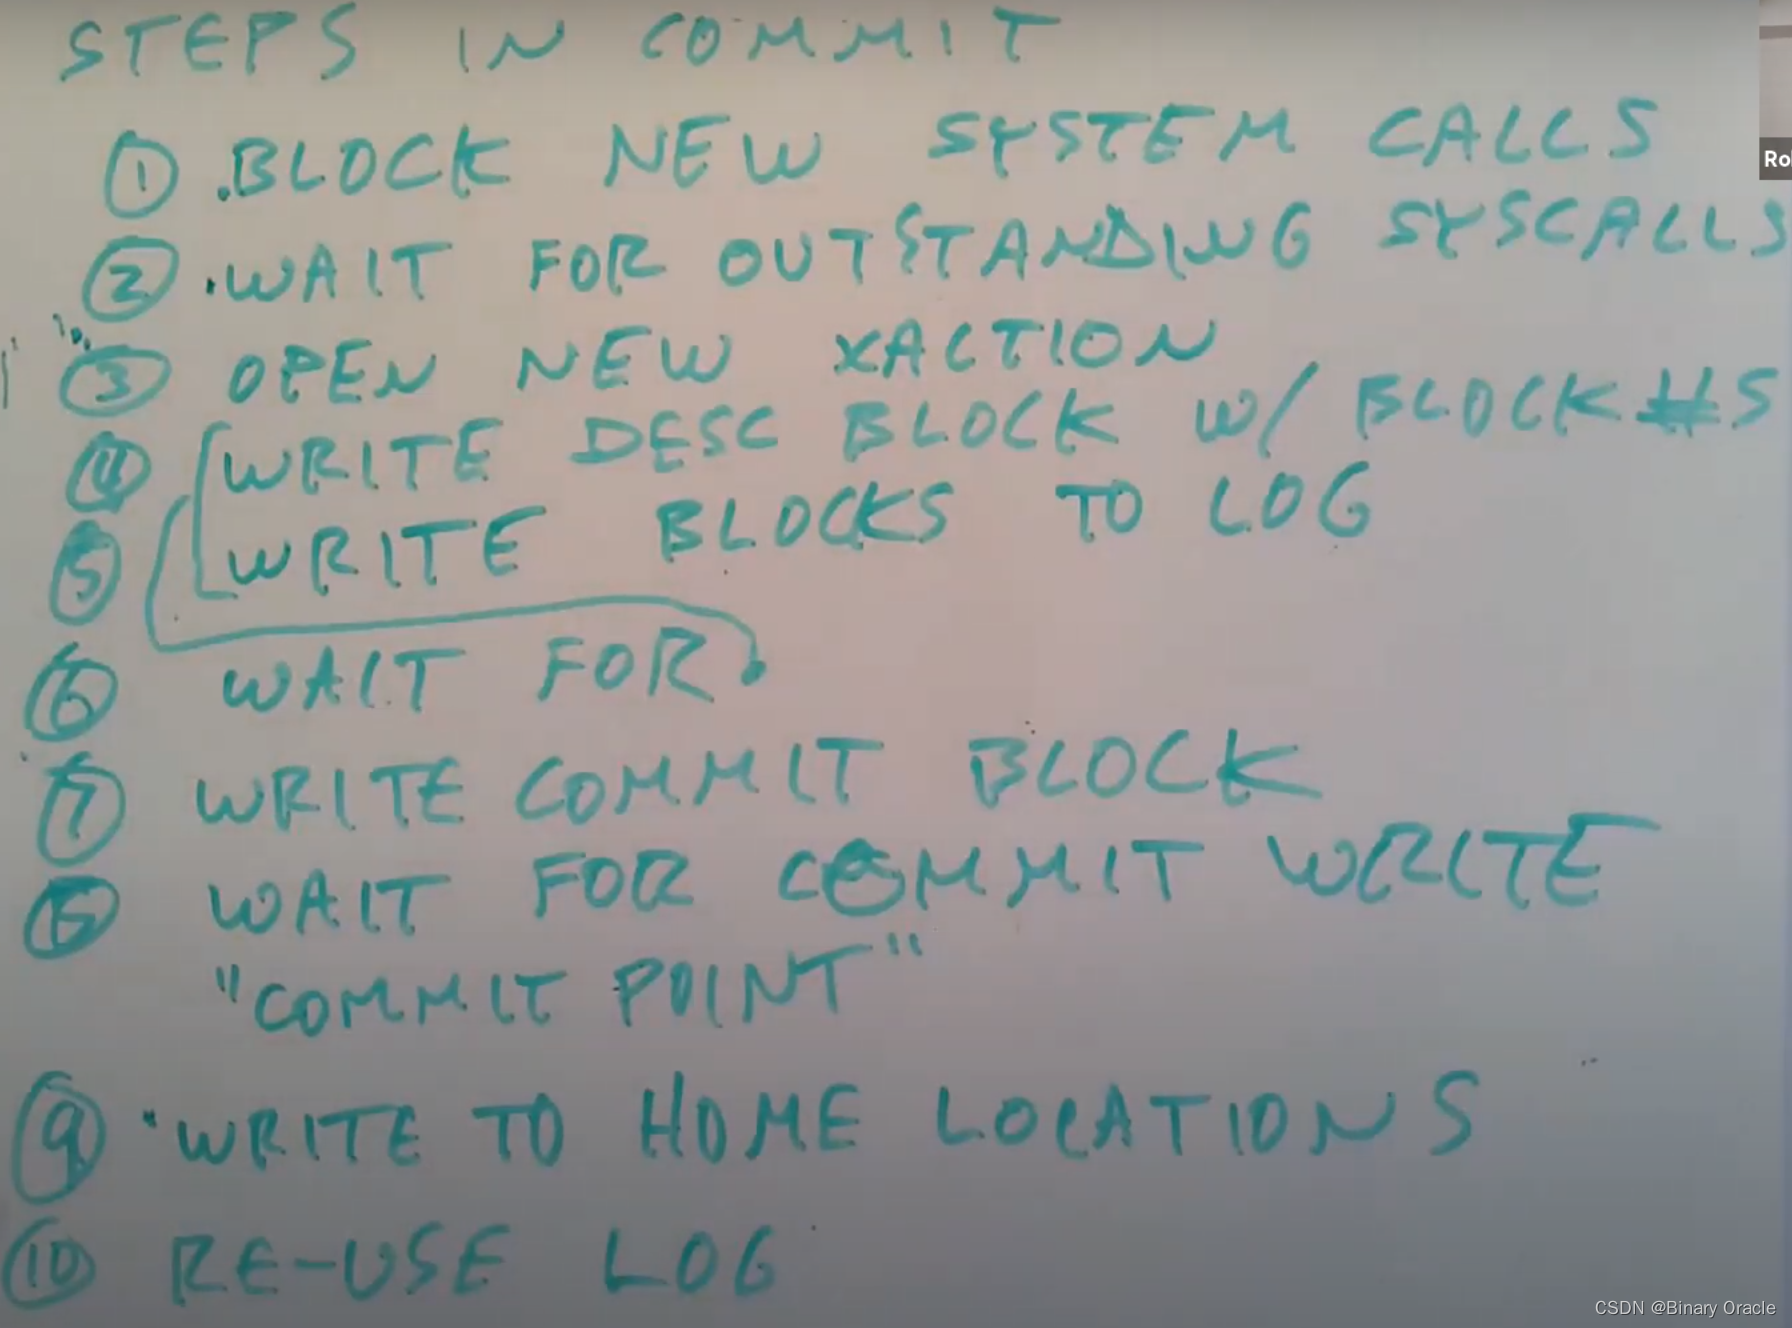 STEPS IN COMMIT
① .BLOCK NEW SYSTEM CALLS
② .WAIT FOR OUTSTANDING SYSCALLS
③ OPEN NEW XACTION
④ WRITE DESC BLOCK W/ BLOCK #S
⑤ WRITE BLOCKS TO LOG
⑥ WAIT FOR
⑦ WRITE COMMIT BLOCK
WAIT FOR COMMIT WRITE
"COMMIT POINT"
⑨ WRITE TO HOME LOCATIONS
⑩ RE-USE LOG
CSDN @Binary Oracle